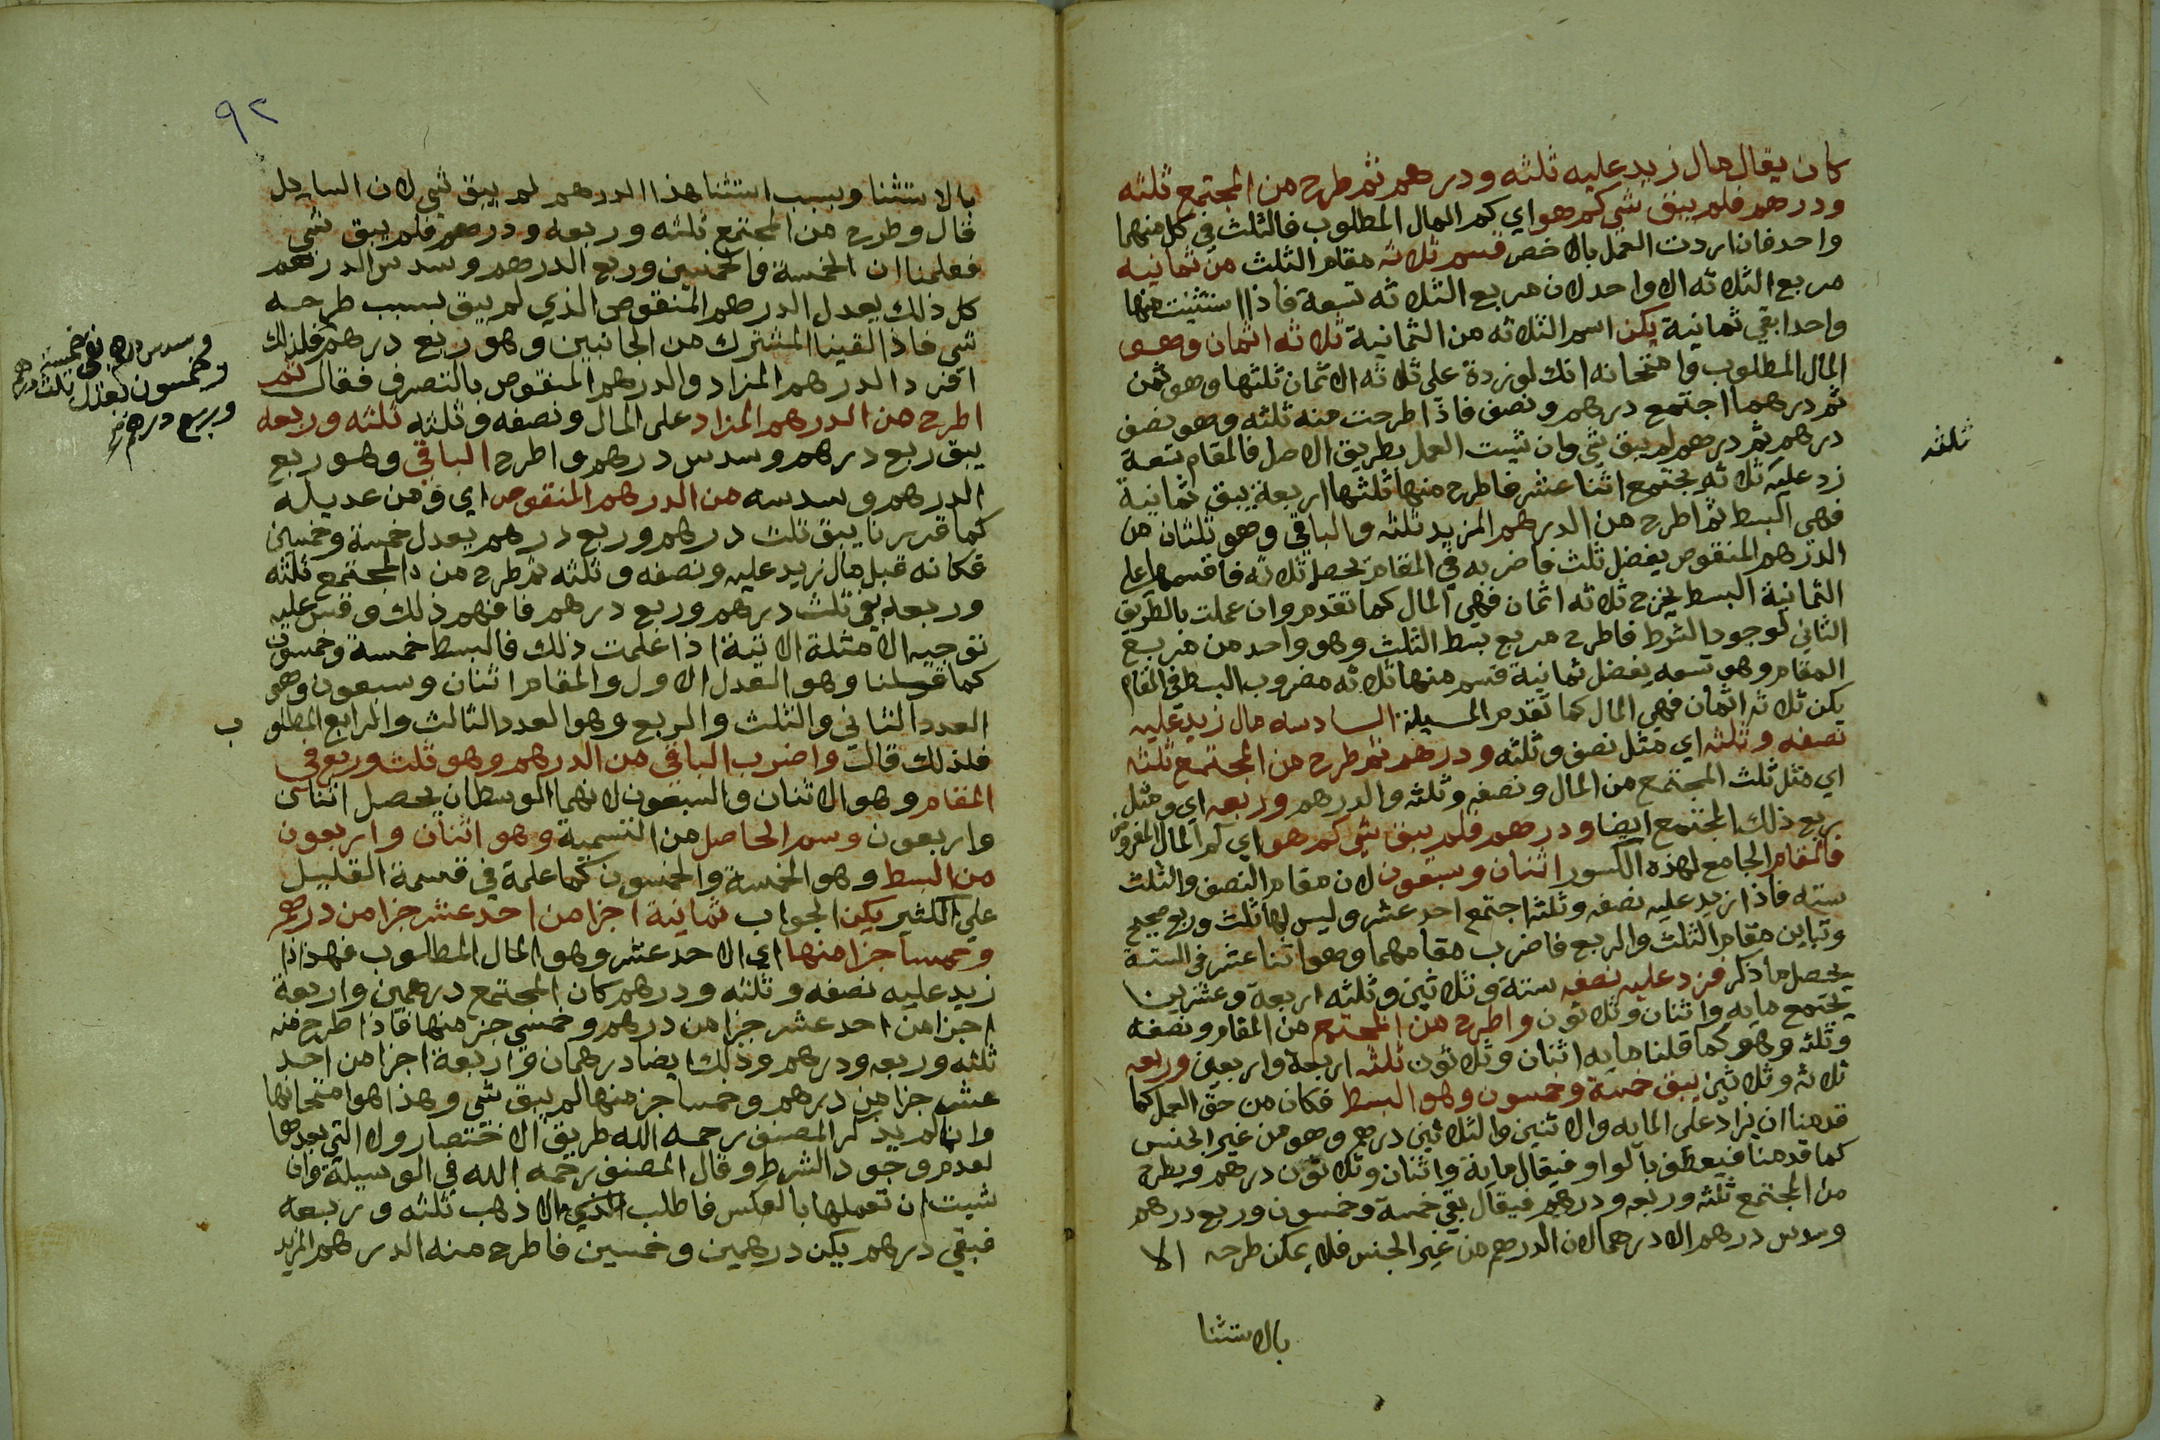 كان يقال مال زيد عليه ثلثه ودرهم ثم طرح من المجتمع ثلثه
ودرهم فلم يبق شي كم هو اي كم المال المطلوب فالثلث في كل منهما
واحد فان اردت العمل بالاخص قسم ثلاثه مقام الثلث من ثمانيه
مربع الثلاثه الا واحد لان مربع الثلاثه تسعة فاذا استثنيت منها
واحدا بقي ثمانية يكن اسم الثلاثه من الثمانية ثلاثه اثمان وهو
المال المطلوب وامتحانه انك لو زدة على ثلاثه الاثمان ثلثها وهو ثمن
ثم درهما اجتمع درهم ونصف فاذا طرحت منه ثلثه وهو نصف
درهم ثم درهم لم يبق شي وان شيت العمل بطريق الاصل فالمقام تسعة
زد عليه ثلاثه يجتمع اثنا عشر فاطرح منها ثلثها اربعة يبق ثمانية
فهي البسط ثم اطرح من الدرهم المزيد ثلثه والباقي وهو ثلثان من
الدرهم المنقوص يفضل ثلث فاضربه في المقام يحصل ثلاثه فاقسمها علي
الثمانية البسط يخرج ثلاثه اثمان فهي المال كما تقدم وان عملت بالطريق
الثاني لوجود الشرط فاطرح مربع بسط الثلث وهو واحد من مربع
المقام وهو تسعه يفضل ثمانية قسم منها ثلاثه مضروب البسط في المقام
يكن ثلاثه اثمان فهي المال كما تقدم المسيلة السادسه مال زيد عليه
نصفه وثلثه اي مثل نصف وثلثه ودرهم ثم طرح من المجتمع ثلثه
اي مثل ثلث المجتمع من المال ونصفه وثلثه والدرهم وربعه اي ومثل
ربع ذلك المجتمع ايضا ودرهم فلم يبق شي كم هو اي كم المال المفروض
فالمقام الجامع لهذه الكسور اثنان وسبعون لان مقام النصف والثلث
سته فاذا زيد عليه نصفه وثلثه اجتمع احد عشر وليس لها ثلث وربع صحيح
وتباين مقام الثلث والربع فاضرب مقامهما وهو اثنا عشر في الستة
يحصل ما ذكر فزد عليه نصفه ستة وثلاثين وثلثه اربعة وعشرين
يجتمع مايه واثنان وثلاثون واطرح من المجتمع من المقام ونصفه
وثلثه وهو كما قلنا مايه اثنان وثلاثون ثلثه اربعة واربعين وربعه
ثلاثه وثلاثين يبق خمسة وخمسون وهو البسط فكان من حق العمل كما
قدمنا ان يزاد على المايه والاثنين والثلاثين درهم وهو من غير الجنس
كما قدمنا فيعطف بالواو فيقال ماية واثنان وثلاثون درهم ويطرح
من المجتمع ثلثه وربعه ودرهم فيقال بقي خمسة وخمسون وربع درهم
وسدس درهم الا درهما لان الدرهم من غير الجنس فلا يمكن طرحه الا
بالاستثنا
ثلثه
٩٢
بالاستثنا وبسبب استثنا هذا الدرهم لم يبق شي لان السايل
قال وطرح من المجتمع ثلثه وربعه ودرهم فلم يبق شي
فعلمنا ان الخمسة والخمسين وربع الدرهم وسدس الدرهم
كل ذلك يعدل الدرهم المنقوص الذي لم يبق بسبب طرحه
شي فاذا القينا المشترك من الجانبين وهو ربع درهم فلذلك
افرد الدرهم المزاد والدرهم المنقوص بالتصرف فقال ثم
اطرح من الدرهم المزاد على المال ونصفه وثلثه ثلثه وربعه
يبق ربع درهم وسدس درهم واطرح الباقي وهو ربع
الدرهم وسدسه من الدرهم المنقوص اي ومن عديله
كما قررنا يبق ثلث درهم وربع درهم يعدل خمسة وخمسين
فكانه قيل مال زيد عليه ونصفه وثلثه ثم طرح من المجتمع ثلثه
وربعه بقي ثلث درهم وربع درهم فافهم ذلك وقس عليه
توجيه الامثلة الاتية اذا علمت ذلك فالبسط خمسة وخمسون
كما قلنا وهو العدل الاول والمقام اثنان وسبعون وهو
العدد الثاني والثلث والربع وهو العدد الثالث والرابع المطلو ب
فلذلك قال واضرب الباقي من الدرهم وهو ثلث وربع في
المقام وهو الاثنان والسبعون لانهما الوسطان يحصل اثنان
واربعون وسم الحاصل من التسمية وهو اثنان واربعون
من البسط وهو الخمسة والخمسون كما علمة في قسمة القليل
علي الكثير يكن الجواب ثمانية اجزا من احد عشر جزا من درهم
وخمسا جزا منها اي الاحد عشر وهو المال المطلوب فهذا اذا
زيد عليه نصفه وثلثه ودرهم كان المجتمع درهمين واربعة
اجزا من احد عشر جزا من درهم وخمسي جز منها فاذا طرح منه
ثلثه وربعه ودرهم وذلك ايضا درهمان واربعة اجزا من احد
عشر جزا من درهم وخمسا جز منها لم يبق شي وهذا هو امتحانها
وان لم يذكر المصنف رحمه الله طريق الاختصار ولا التي بعدها
لعدم وجود الشرط وقال المصنف رحمه الله في الوسيلة وان
شيت ان تعملها بالعكس فاطلب الذي الا ذهب ثلثه وربعه
فبقي درهم يكن درهمين وخمسين فاطرح منه الدرهم المزيد
وسدس درهم بقي خمسة
وخمسون تعدل ثلث درهم
وربع درهم صح